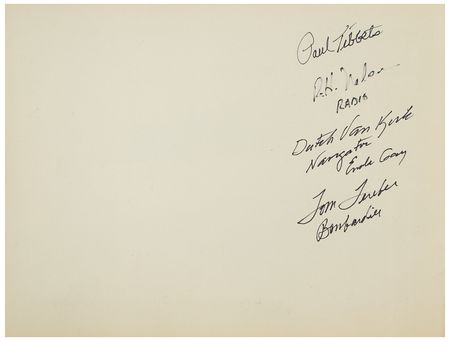 Paul Tibbets
R.H. Nelson
RADIO
Dutch Van Kirk
Navigator
Enola Gay
Tom Ferebee
Bombardier